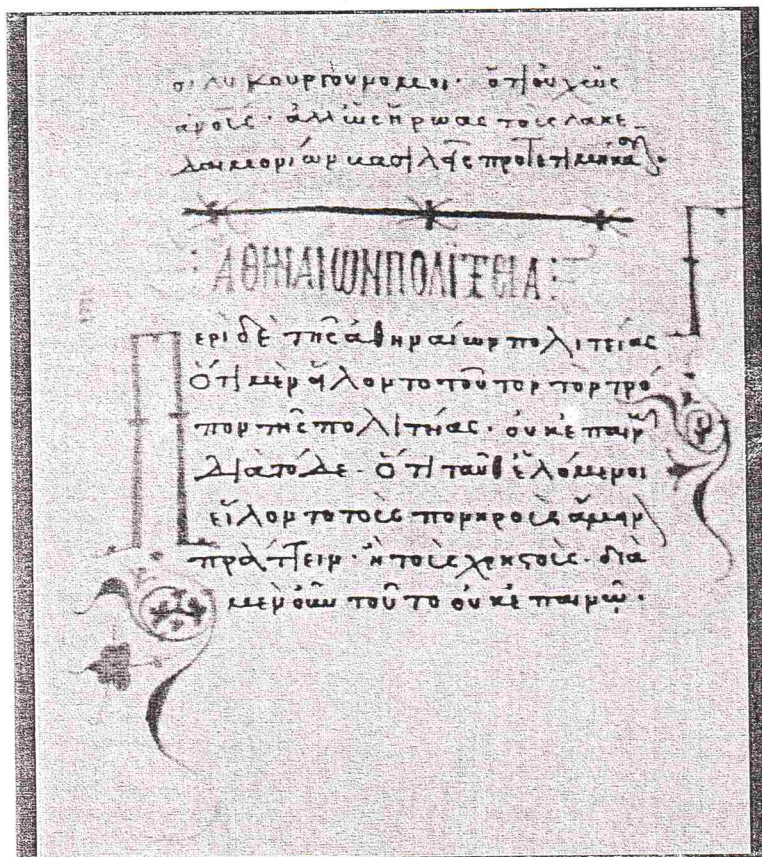 σι λυκούργου νόμοι· ὅτι οὐχ ὡς
ἀνοῦς· ἀλλ' ὡς ἥρωας τοὺς λακε
δαιμονίων βασιλεῖς προτετιμήκασιν.
:ΑΘΗΝΑΙΩΝ ΠΟΛΙΤΕΙΑ:
Περὶ δὲ τῆς ἀθηναίων πολιτείας
Ὅτι μὲν εἵλοντο τοῦτον τὸν τρό
πον τῆς πολιτείας· οὐκ ἐπαινῶ
διὰ τόδε· Ὅτι ταῦθ' ἑλόμενοι
εἵλοντο τοὺς πονηροὺς ἄμεινον
πράττειν· ἢ τοὺς χρηστούς· διὰ
μὲν οὖν τοῦτο οὐκ ἐπαινῶ·